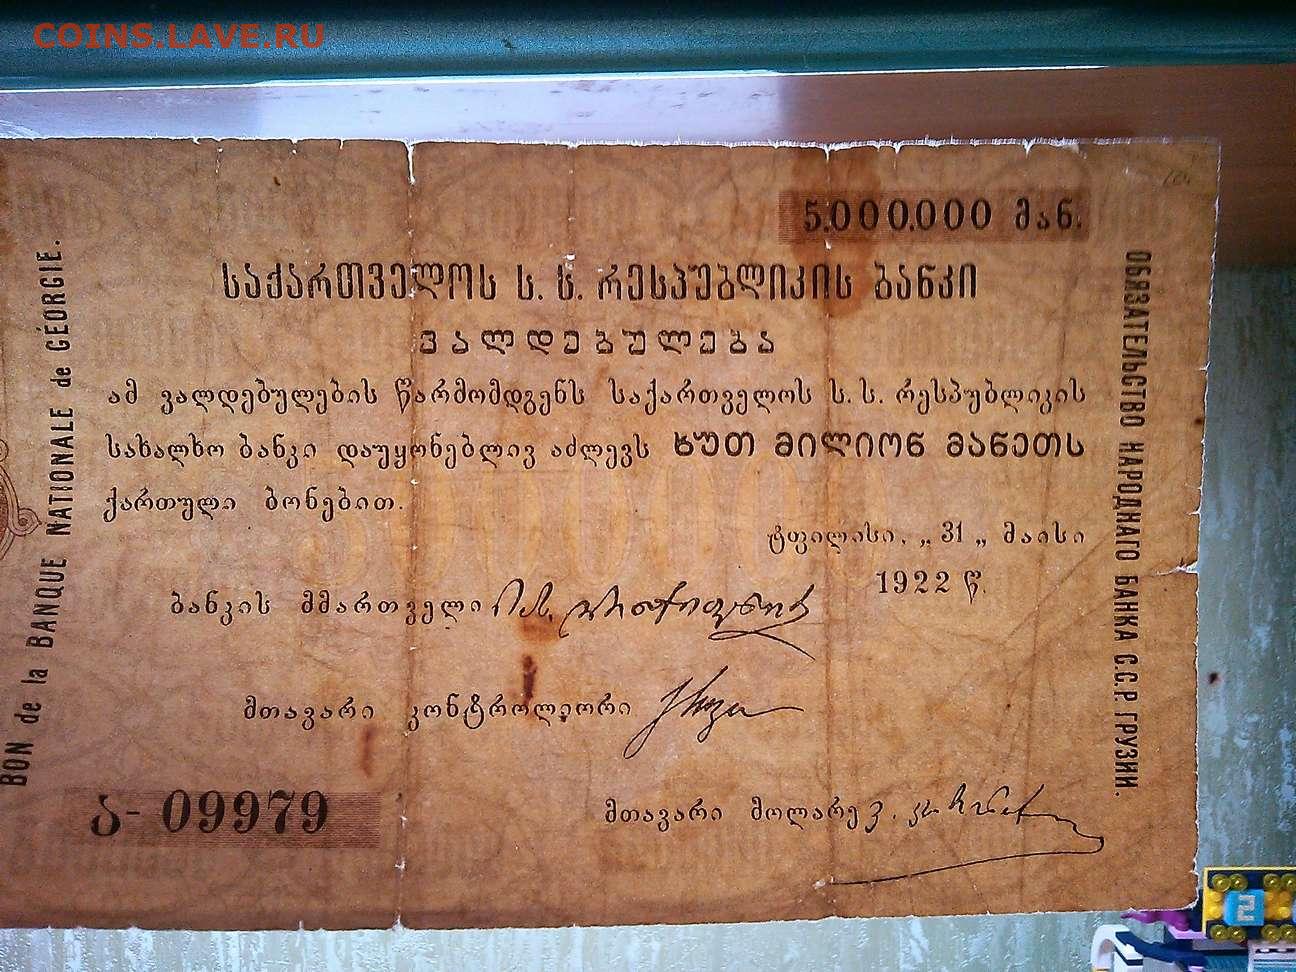 COINS.LAVE.RU
5.000.000 მან.
საქართველოს ს. ს. რესპუბლიკის ბანკი
ვალდებულება
ამ ვალდებულების წარმომდგენს საქართველოს ს. ს. რესპუბლიკის
სახალხო ბანკი დაუყონებლივ აძლევს ხუთ მილიონ მანეთს
ქართული ბონებით.
ტფილისი, „ 31 „ მაისი
1922 წ.
ბანკის მმართველი
მთავარი კონტროლიორი
მთავარი მოლარე
ა- 09979
BON de la BANQUE NATIONALE de GÉORGIE.
ОБЯЗАТЕЛЬСТВО НАРОДНАГО БАНКА С.С.Р. ГРУЗИИ.
5000000
2